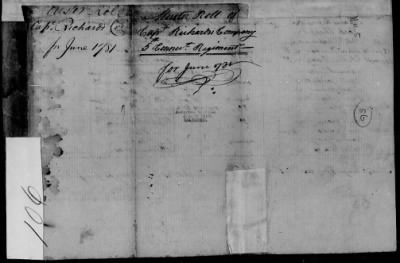 Muster Rol
Cap. Richards C
for June 1781
Muster Roll of
Cap. Richards Company
5 Connec.t Regiment
for June
95
106